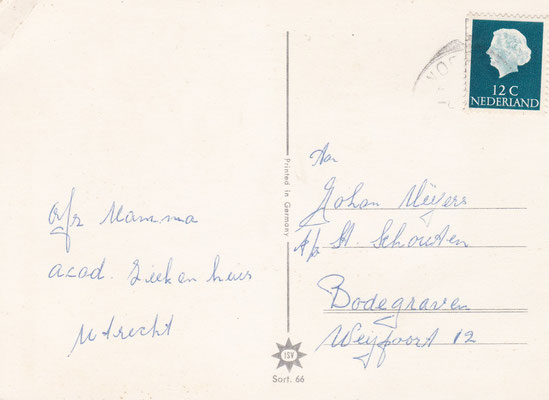 12 C
NEDERLAND
Printed in Germany
Aan
Johan Meyers
p/a St. Schouten
Bodegraven
Weypoort 12
afz Mamma
acad. Ziekenhuis
Utrecht
ISV
Sort. 66